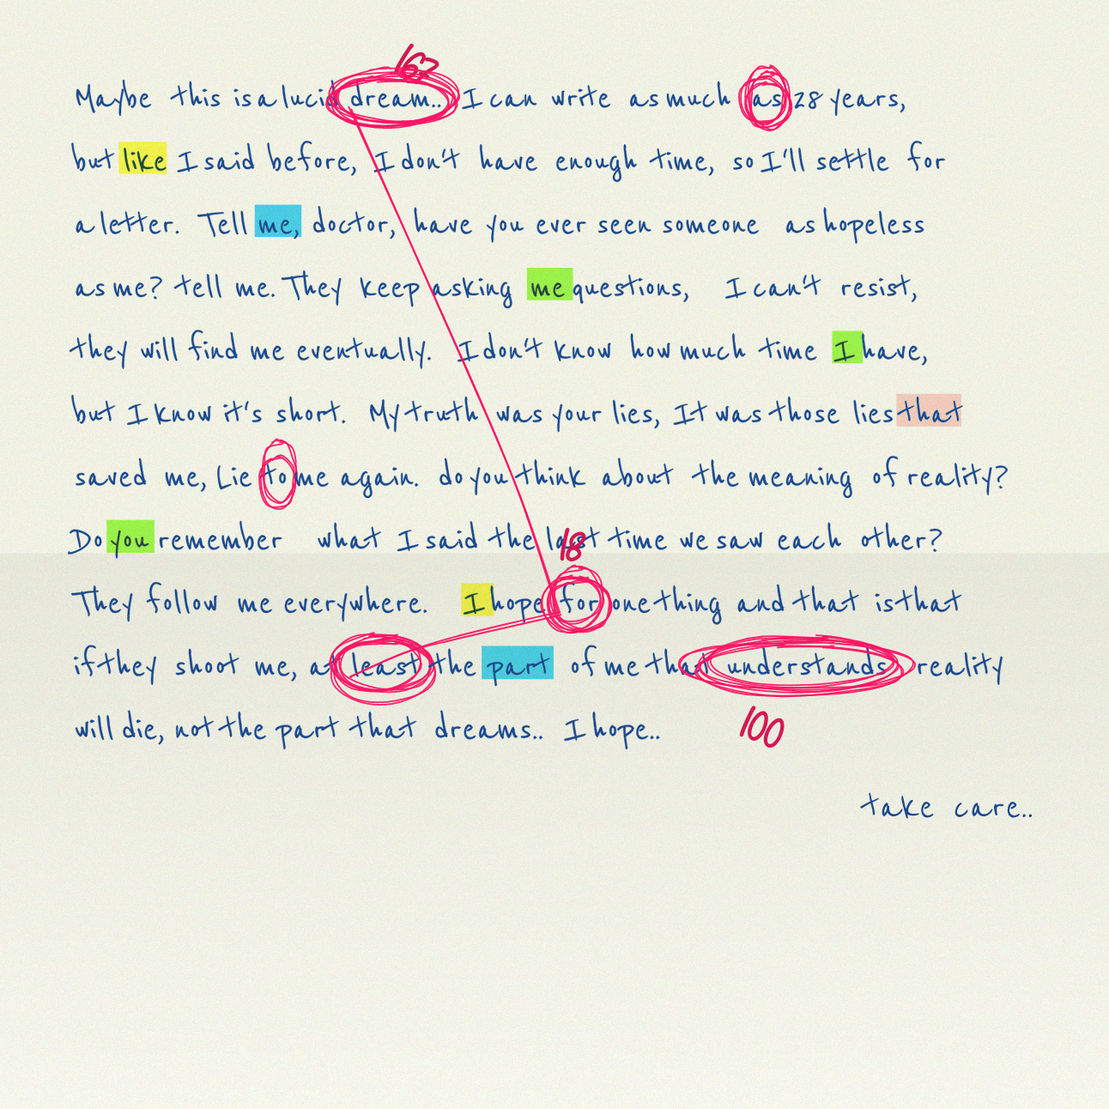 167
Maybe this is a lucid dream.. I can write as much as 28 years,
but like I said before, I don't have enough time, so I'll settle for
a letter. Tell me, doctor, have you ever seen someone as hopeless
as me? tell me. They keep asking me questions, I can't resist,
they will find me eventually. I don't know how much time I have,
but I know it's short. My truth was your lies, It was those lies that
saved me, Lie to me again. do you think about the meaning of reality?
Do you remember what I said the last time we saw each other?
18
They follow me everywhere. I hope for one thing and that is that
if they shoot me, at least the part of me that understands reality
will die, not the part that dreams.. I hope..
100
take care..